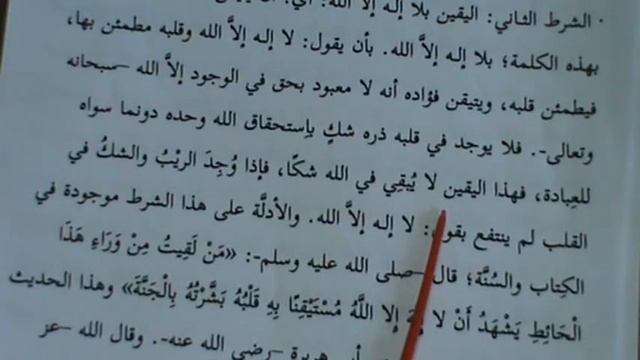 الشرط الثاني: اليقين بلا إله إلاَّ الله: أي
بهذه الكلمة؛ بلا إله إلاَّ الله. بأن يقول: لا إله إلاَّ الله وقلبه مطمئن بها،
فيطمئن قلبه، ويتيقن فؤاده أنه لا معبود بحق في الوجود إلاَّ الله –سبحانه
وتعالى-. فلا يوجد في قلبه ذره شكٍ بإستحقاق الله وحده دونما سواه
للعِبادة، فهذا اليقين لا يُبقِي في الله شكًا، فإذا وُجِدَ الريْبُ والشكُ في
القلب لم ينتفع بقول: لا إله إلاَّ الله. والأدلَّة على هذا الشرط موجودة في
الكِتاب والسُنَّة؛ قال –صلى الله عليه وسلم-: «مَنْ لَقِيتُ مِنْ وَرَاءِ هَذَا
الْحَائِطِ يَشْهَدُ أَنْ لا إِلَهَ إِلا اللَّهُ مُسْتَيْقِنًا بِهِ قَلْبُهُ بَشَّرْتُهُ بِالْجَنَّةَ» وهذا الحديث
أبي هريرة –رضي الله عنه-. وقال الله –عز